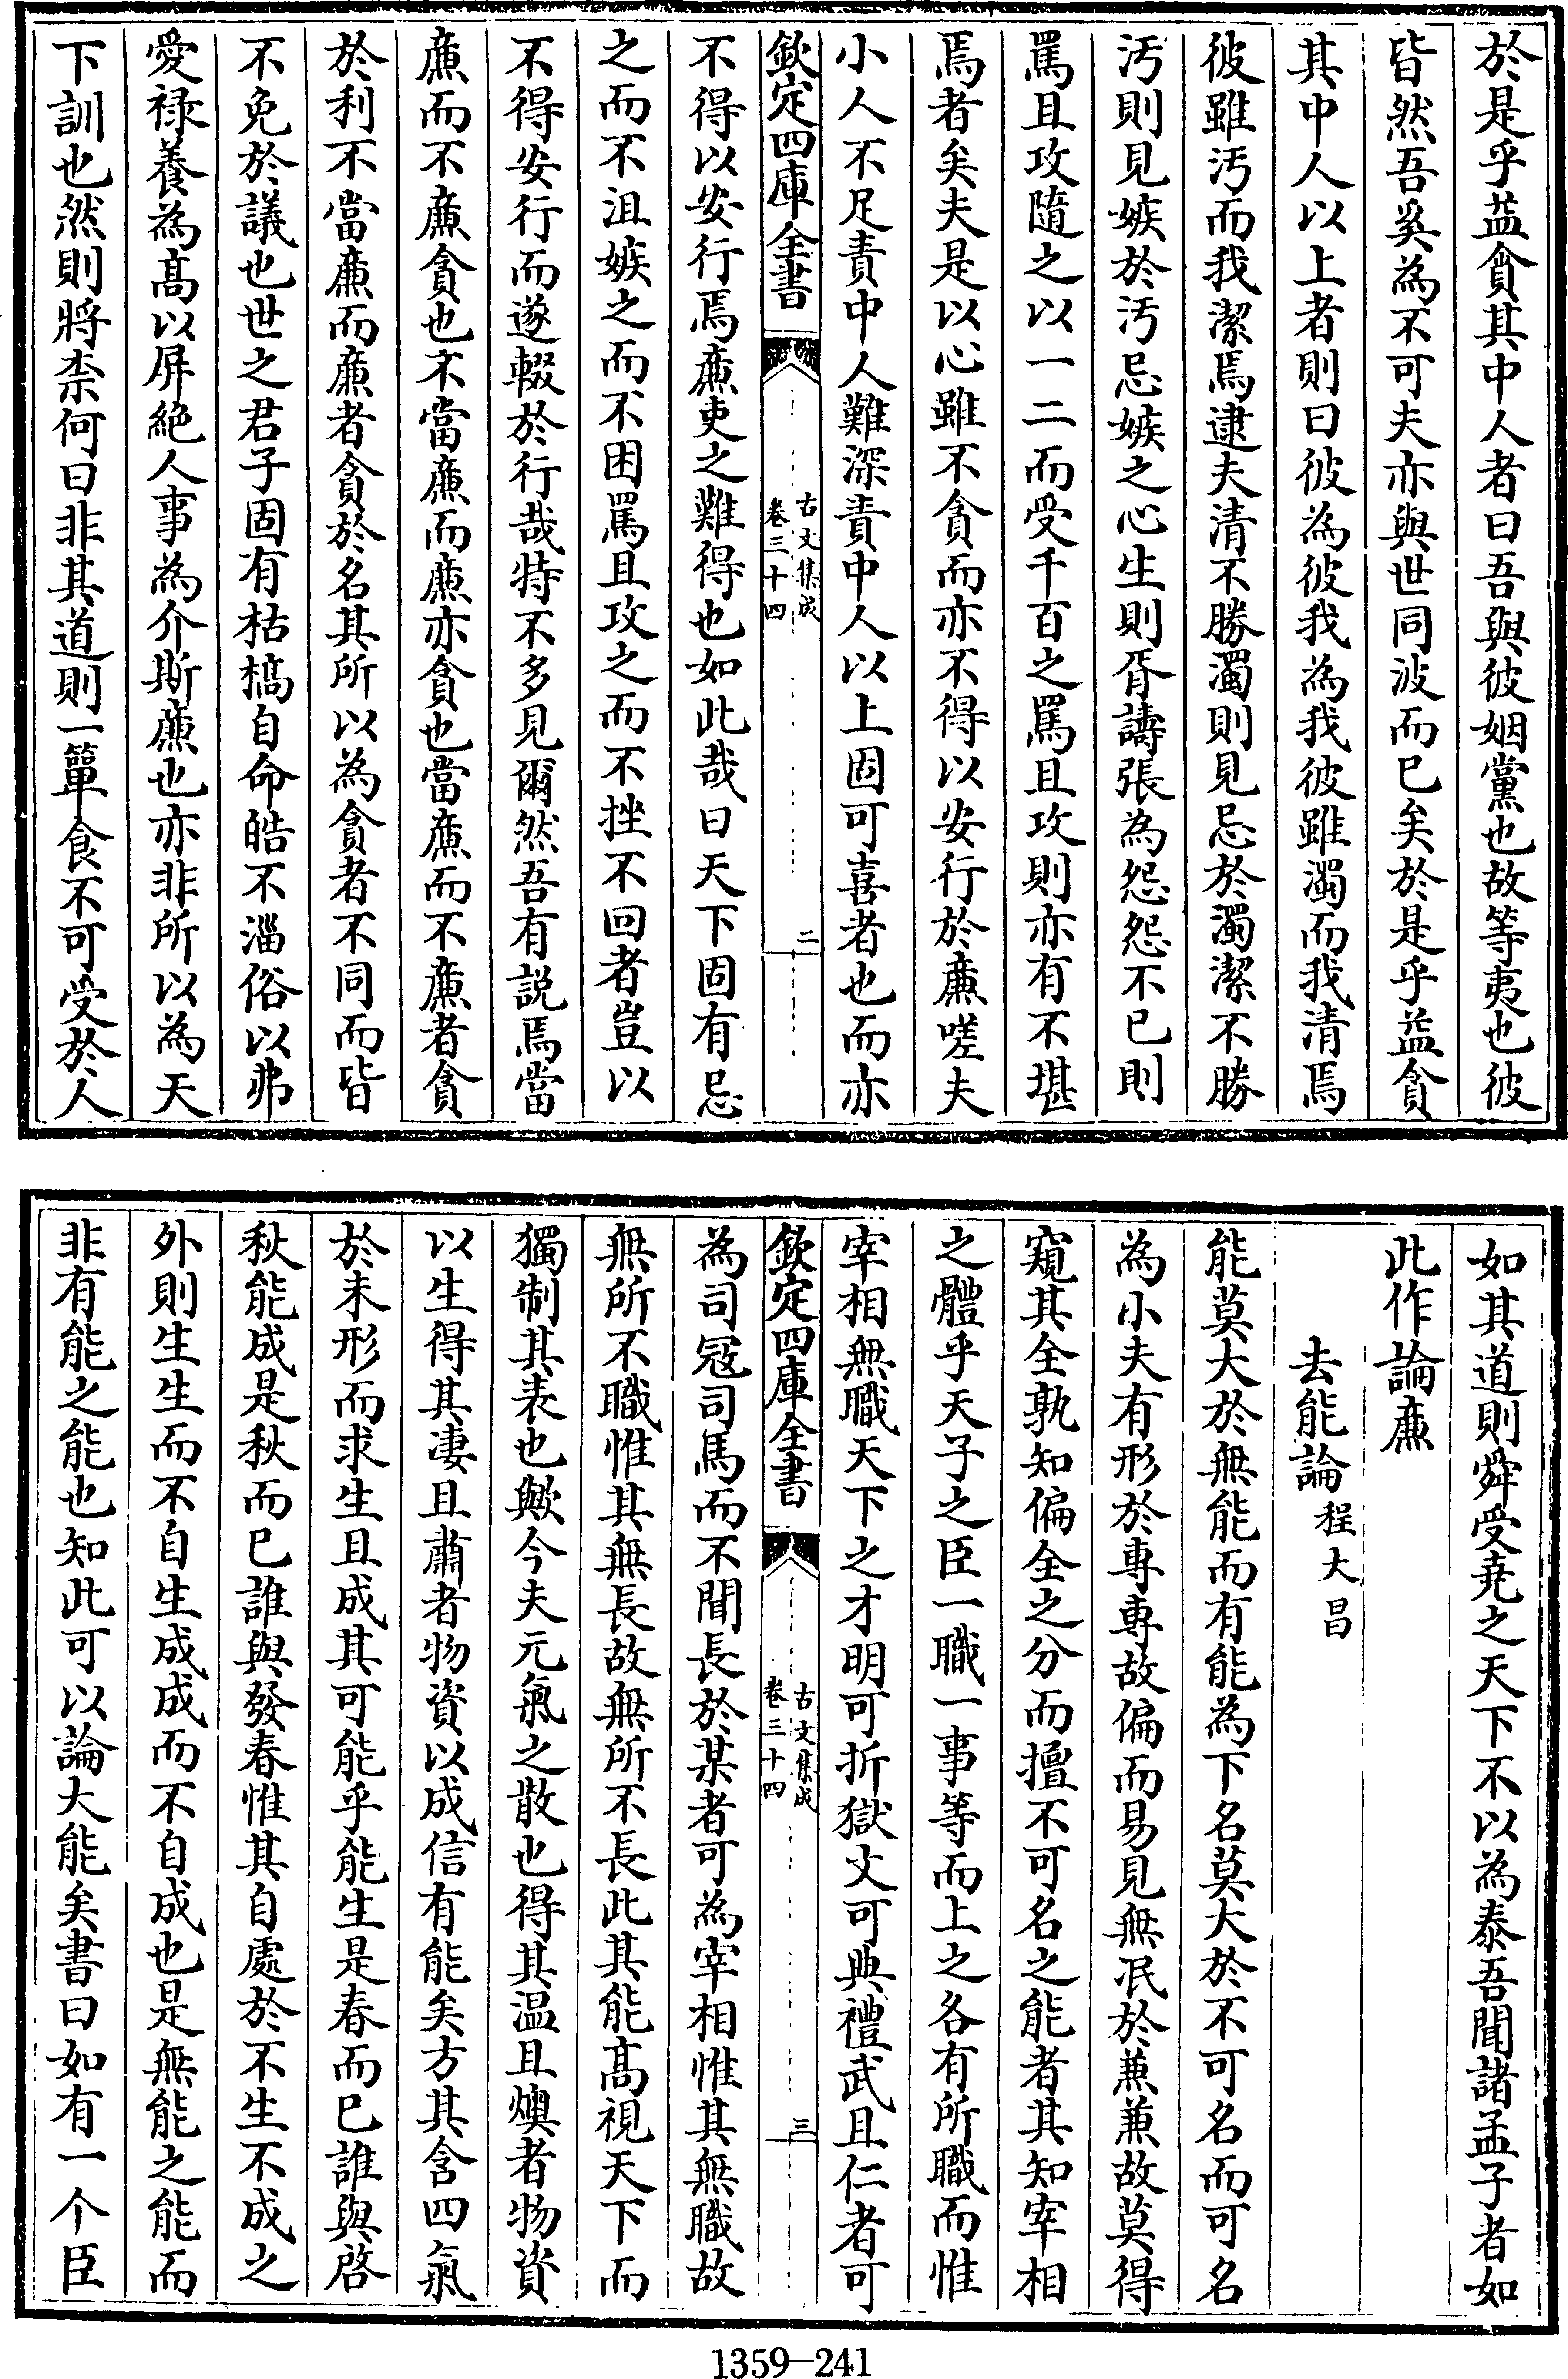 於是乎益貪其中人者曰吾與彼姻黨也故等夷也彼
皆然吾奚為不可夫亦與世同波而已矣於是乎益貪
其中人以上者則曰彼為彼我為我彼雖濁而我清焉
彼雖汚而我潔焉逮夫清不勝濁則見忌於濁潔不勝
汚則見嫉於汚忌嫉之心生則胥譸張為怨怨不已則
罵且攻隨之以一二而受千百之罵且攻則亦有不堪
焉者矣夫是以心雖不貪而亦不得以安行於亷嗟夫
小人不足責中人難深責中人以上固可喜者也而亦
欽定四庫全書
古文集成
卷三十四
二
不得以安行焉亷吏之難得也如此哉曰天下固有忌
之而不沮嫉之而不困罵且攻之而不挫不回者豈以
不得安行而遂輟於行哉特不多見爾然吾有説焉當
亷而不亷貪也不當亷而亷亦貪也當亷而不亷者貪
於利不當亷而亷者貪於名其所以為貪者不同而皆
不免於議也世之君子固有枯槁自命皓不淄俗以弗
愛禄養為髙以屏絶人事為介斯亷也亦非所以為天
下訓也然則將柰何曰非其道則一簞食不可受於人
如其道則舜受堯之天下不以為泰吾聞諸孟子者如
此作論亷
去能論 程大昌
能莫大於無能而有能為下名莫大於不可名而可名
為小夫有形於專專故偏而易見無泯於兼兼故莫得
窺其全孰知偏全之分而擅不可名之能者其知宰相
之體乎天子之臣一職一事等而上之各有所職而惟
宰相無職天下之才明可折獄文可典禮武且仁者可
欽定四庫全書
古文集成
卷三十四
三
為司冦司馬而不聞長於某者可為宰相惟其無職故
無所不職惟其無長故無所不長此其能髙視天下而
獨制其表也歟今夫元氣之散也得其温且燠者物資
以生得其凄且肅者物資以成信有能矣方其含四氣
於未形而求生且成其可能乎能生是春而已誰與啓
秋能成是秋而已誰與發春惟其自處於不生不成之
外則生生而不自生成成而不自成也是無能之能而
非有能之能也知此可以論大能矣書曰如有一个臣
1359-241